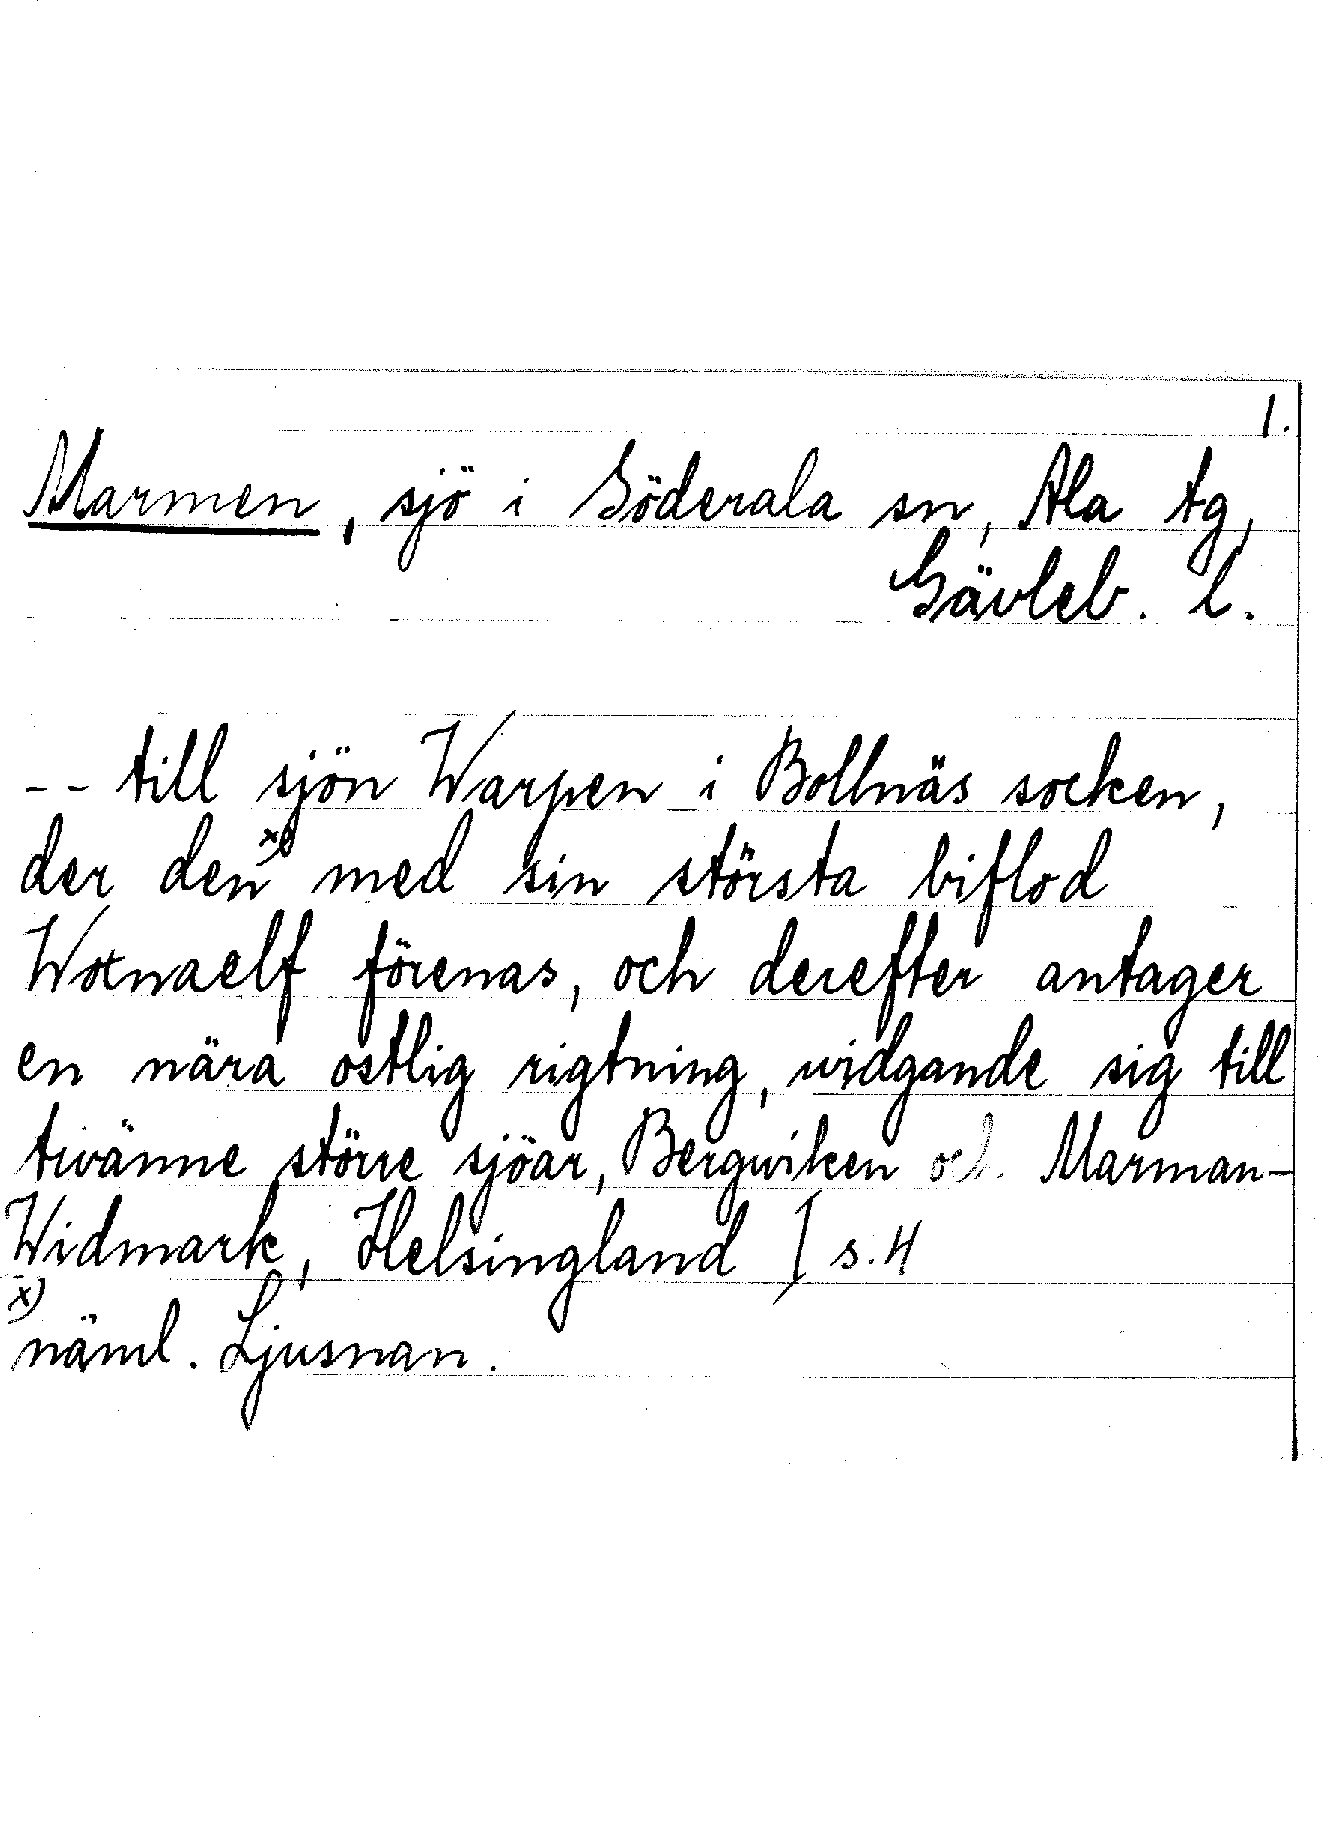 1.
Marmen, sjö i Söderala sn, Ala tg,
Gävleb. l.
-- till sjön Warpen i Bollnäs socken,
der den x) med sin största biflod
Woxnaelf förenas, och derefter antager
en nära ostlig rigtning, widgande sig till
twänne större sjöar, Bergwiken och Marman-
Widmark, Helsingland I s. 4
x)
näml. Ljusnan.